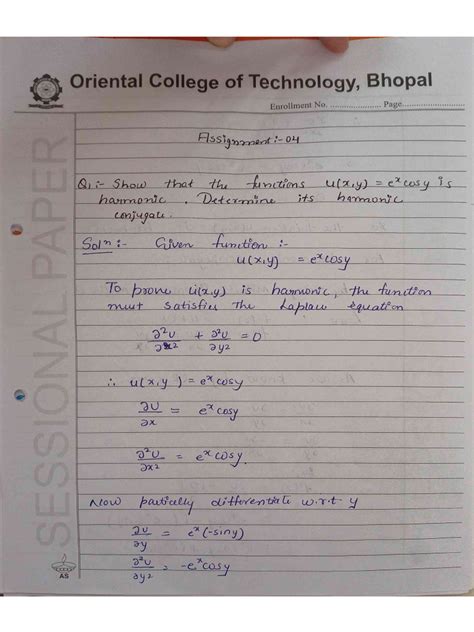 Oriental College of Technology, Bhopal
Enrollment No. .................... Page....................
SESSIONAL PAPER
Assignment:- 04
Q1:- Show that the functions u(x,y) = e^x cosy is
harmonic. Determine its hermonic
conjugate.
Solⁿ:- Given function :-
u(x,y) = e^x cosy
To prove u(x,y) is harmonic, the function
must satisfies the Laplace equation
∂²U/∂x² + ∂²U/∂y² = 0
∴ u(x,y) = e^x cosy
∂U/∂x = e^x cosy
∂²U/∂x² = e^x cosy.
Now partially differentiate w.r.t y
∂U/∂y = e^x (-siny)
∂²U/∂y² = -e^x cosy
AS